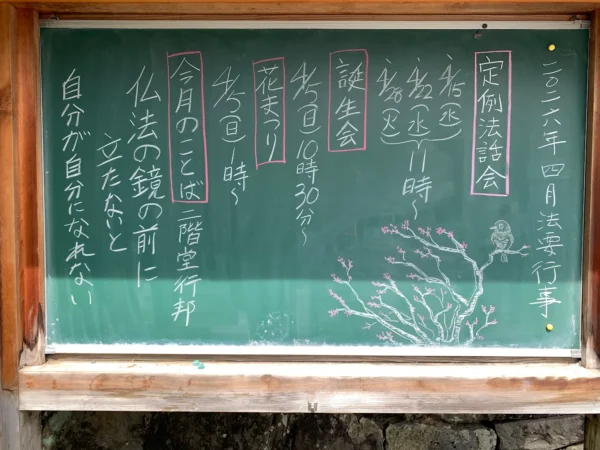 二〇二六年 四月法要行事
定例法話会
4/15(水)
4/22(水)
4/28(火)
11時～
誕生会
4/5(日)10時30分～
花まつり
4/5(日)1時～
今月のことば 二階堂行邦
仏法の鏡の前に
立たないと
自分が自分になれない